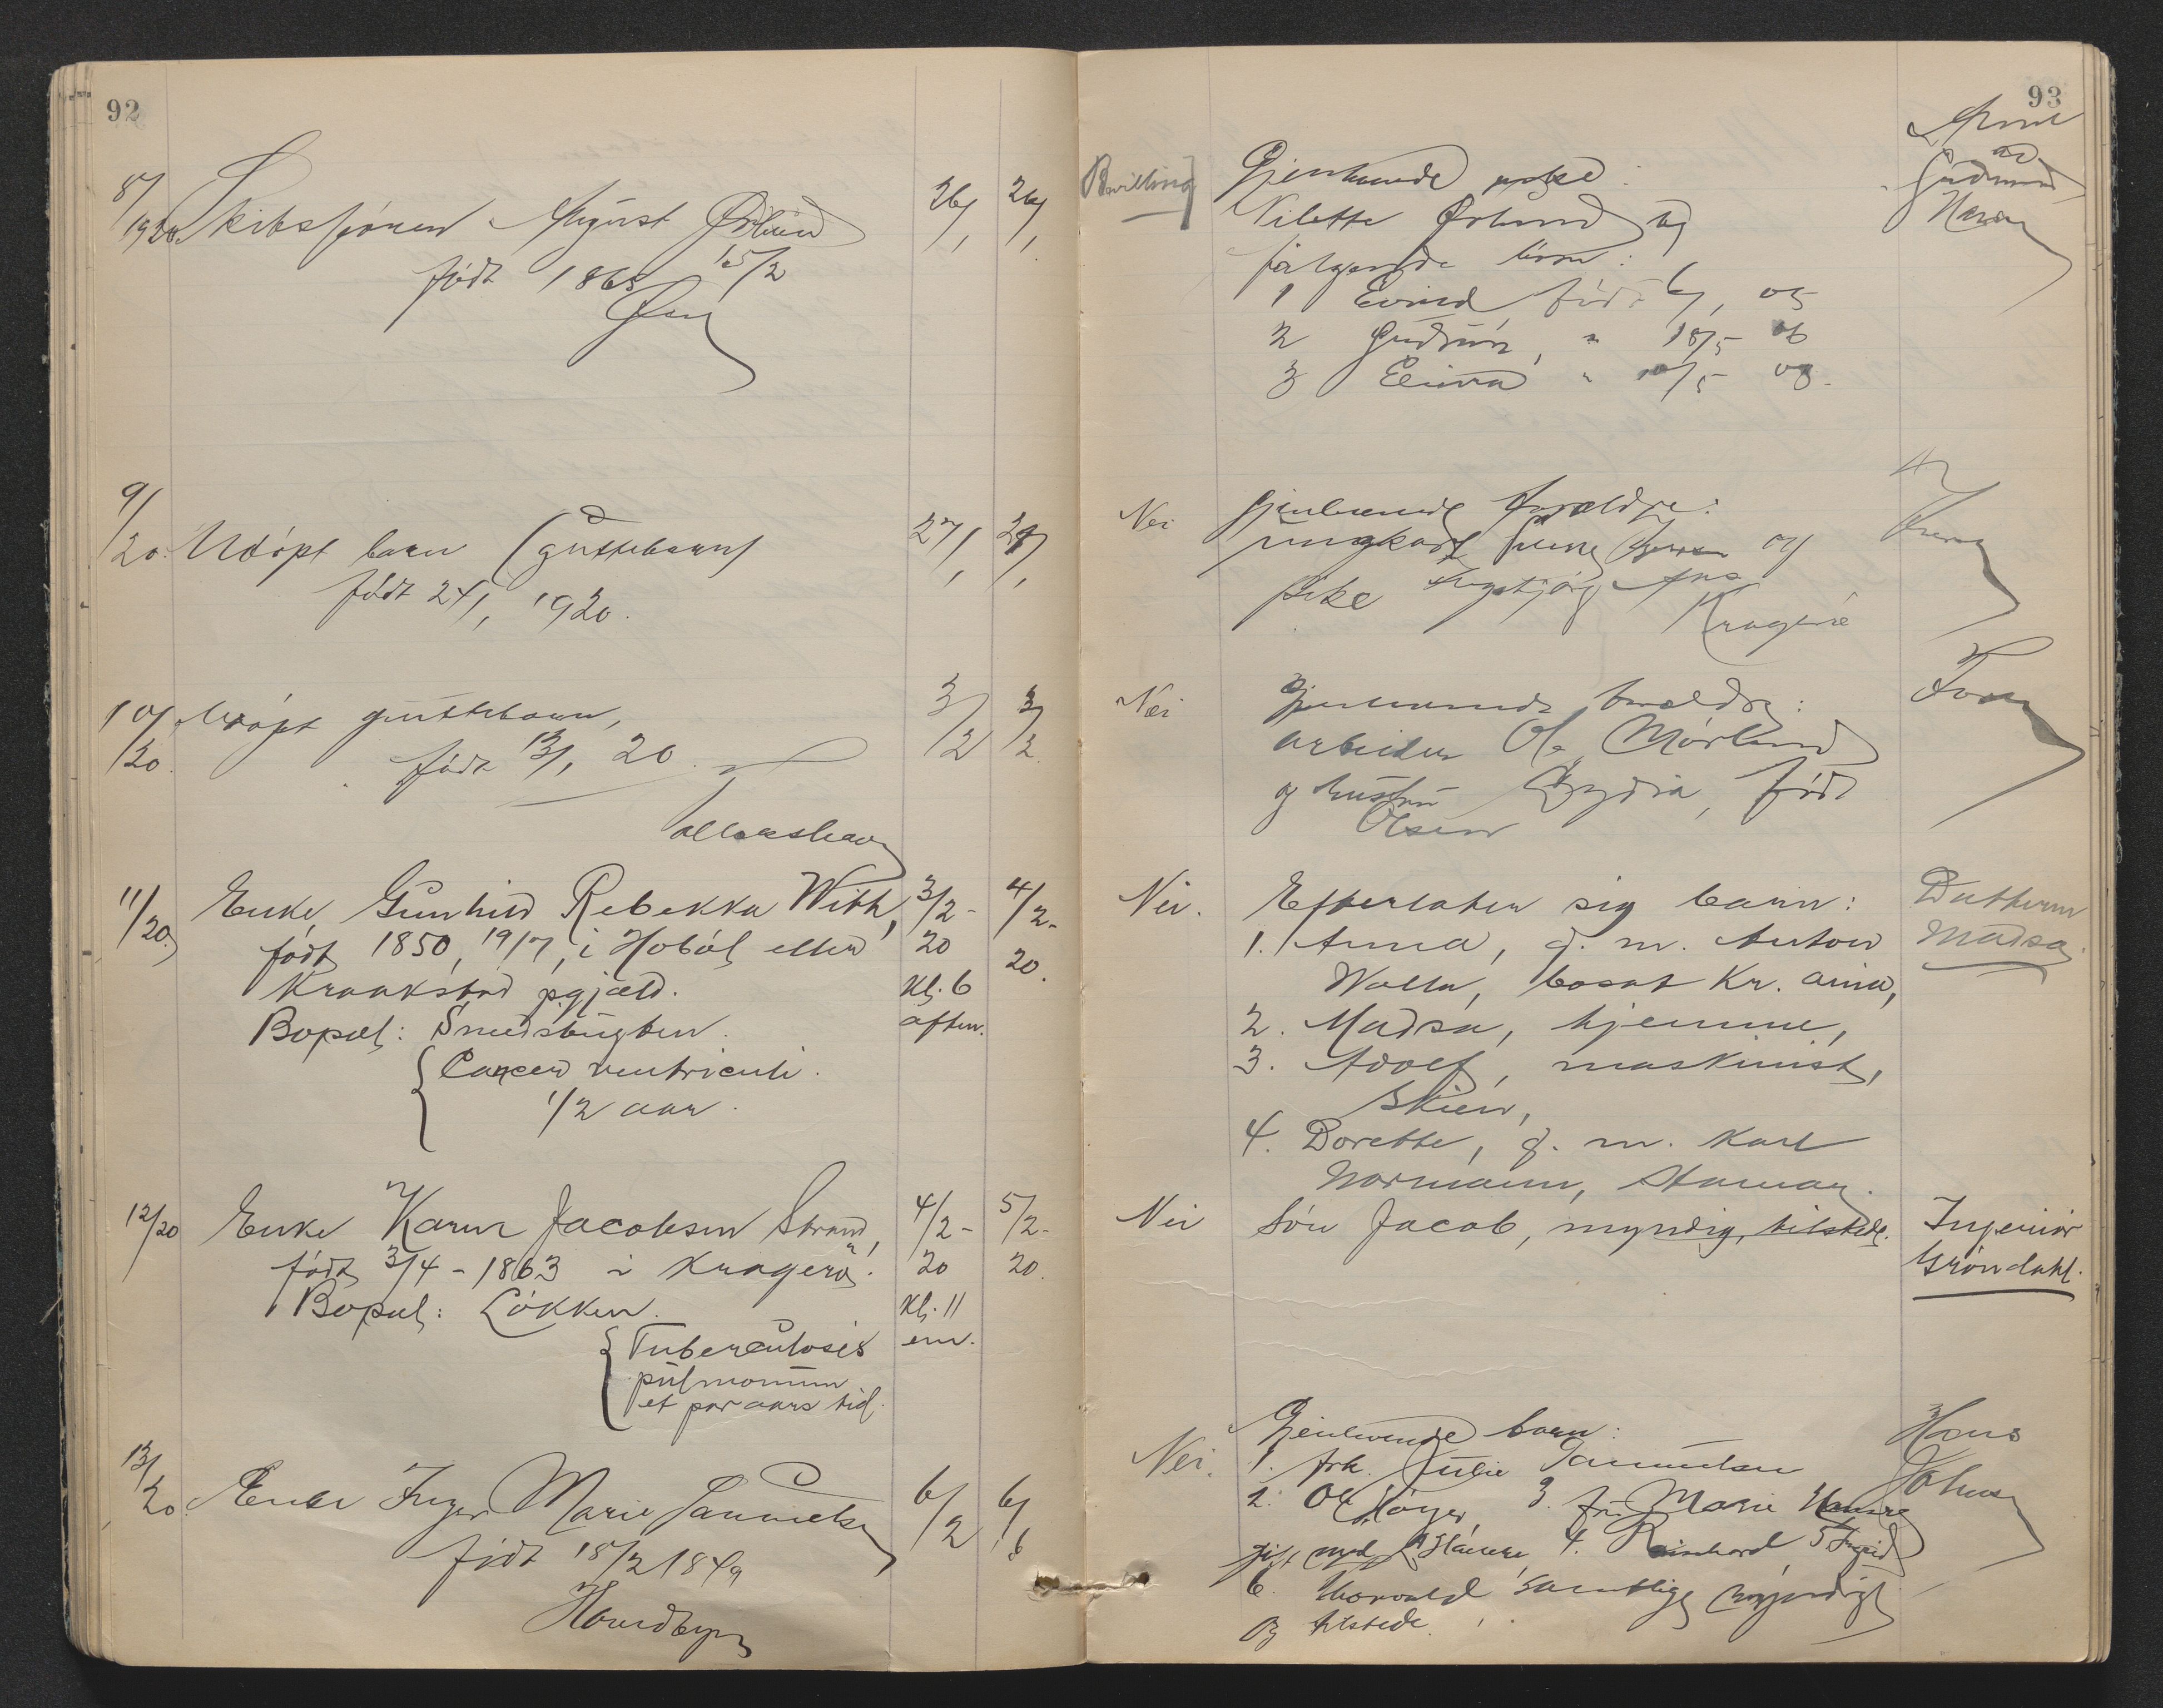 92
8/1920. Skibsfører August Ørlund 26/1 26/1
født 1868 15/2
9/20. Udøpt barn (guttebarn) 27/1 27/1
født 24/1 1920.
10/20. Udøpt guttebarn, 3/2 3/2
født 13/1 20.
11/20. Enke Gunhild Rebekka With, 3/2- 4/2-
født 1850, 19/7, i Hobøl eller 20 20.
Kraakstad p.gjæld. Kl. 6
Bopæl: Smedsbugten. aften.
Cancer ventriculi.
1/2 aar.
12/20 Enke Karen Jacobsen Strand, 4/2- 5/2-
født 3/4-1863 i Kragerø. 20 20.
Bopæl: Løkken. Kl. 11
Tuberculosis em.
pulmonum
et par aars tid.
13/20. Enke Inger Marie 6/2 6/2
født 15/2 1849
93
Bevilling Gjenlevende enke:
Nilette Ørlund og
følgende børn:
1 født 6/1 05
2 Gudrun, " 18/5 06
3 " 10/5 08.
Nei gjenlevende forældre:
ungkarl og
pike
Kragerø
Nei Gjenlevende forældre:
arbeider Ole Mørland
og hustru Lydia, født
Olsen
Nei. Efterlater sig barn: Datteren
1. Anna, g. m. Anton Madsa.
Walla, bosat Kr.ania,
2. Madsa, hjemme,
3. Adolf, maskinist,
Skien,
4. Dorette, g. m. Karl
Normann,
Nei Søn Jacob, myndig, tilstede. Ingeniør
Grøndahl.
Gjenlevende barn: Hans
Nei. 1. frk. Julie
2. Ole 3. fru Marie
gift med 4. Reinhard 5
6. Thorvald samtlige myndige
og tilstede.